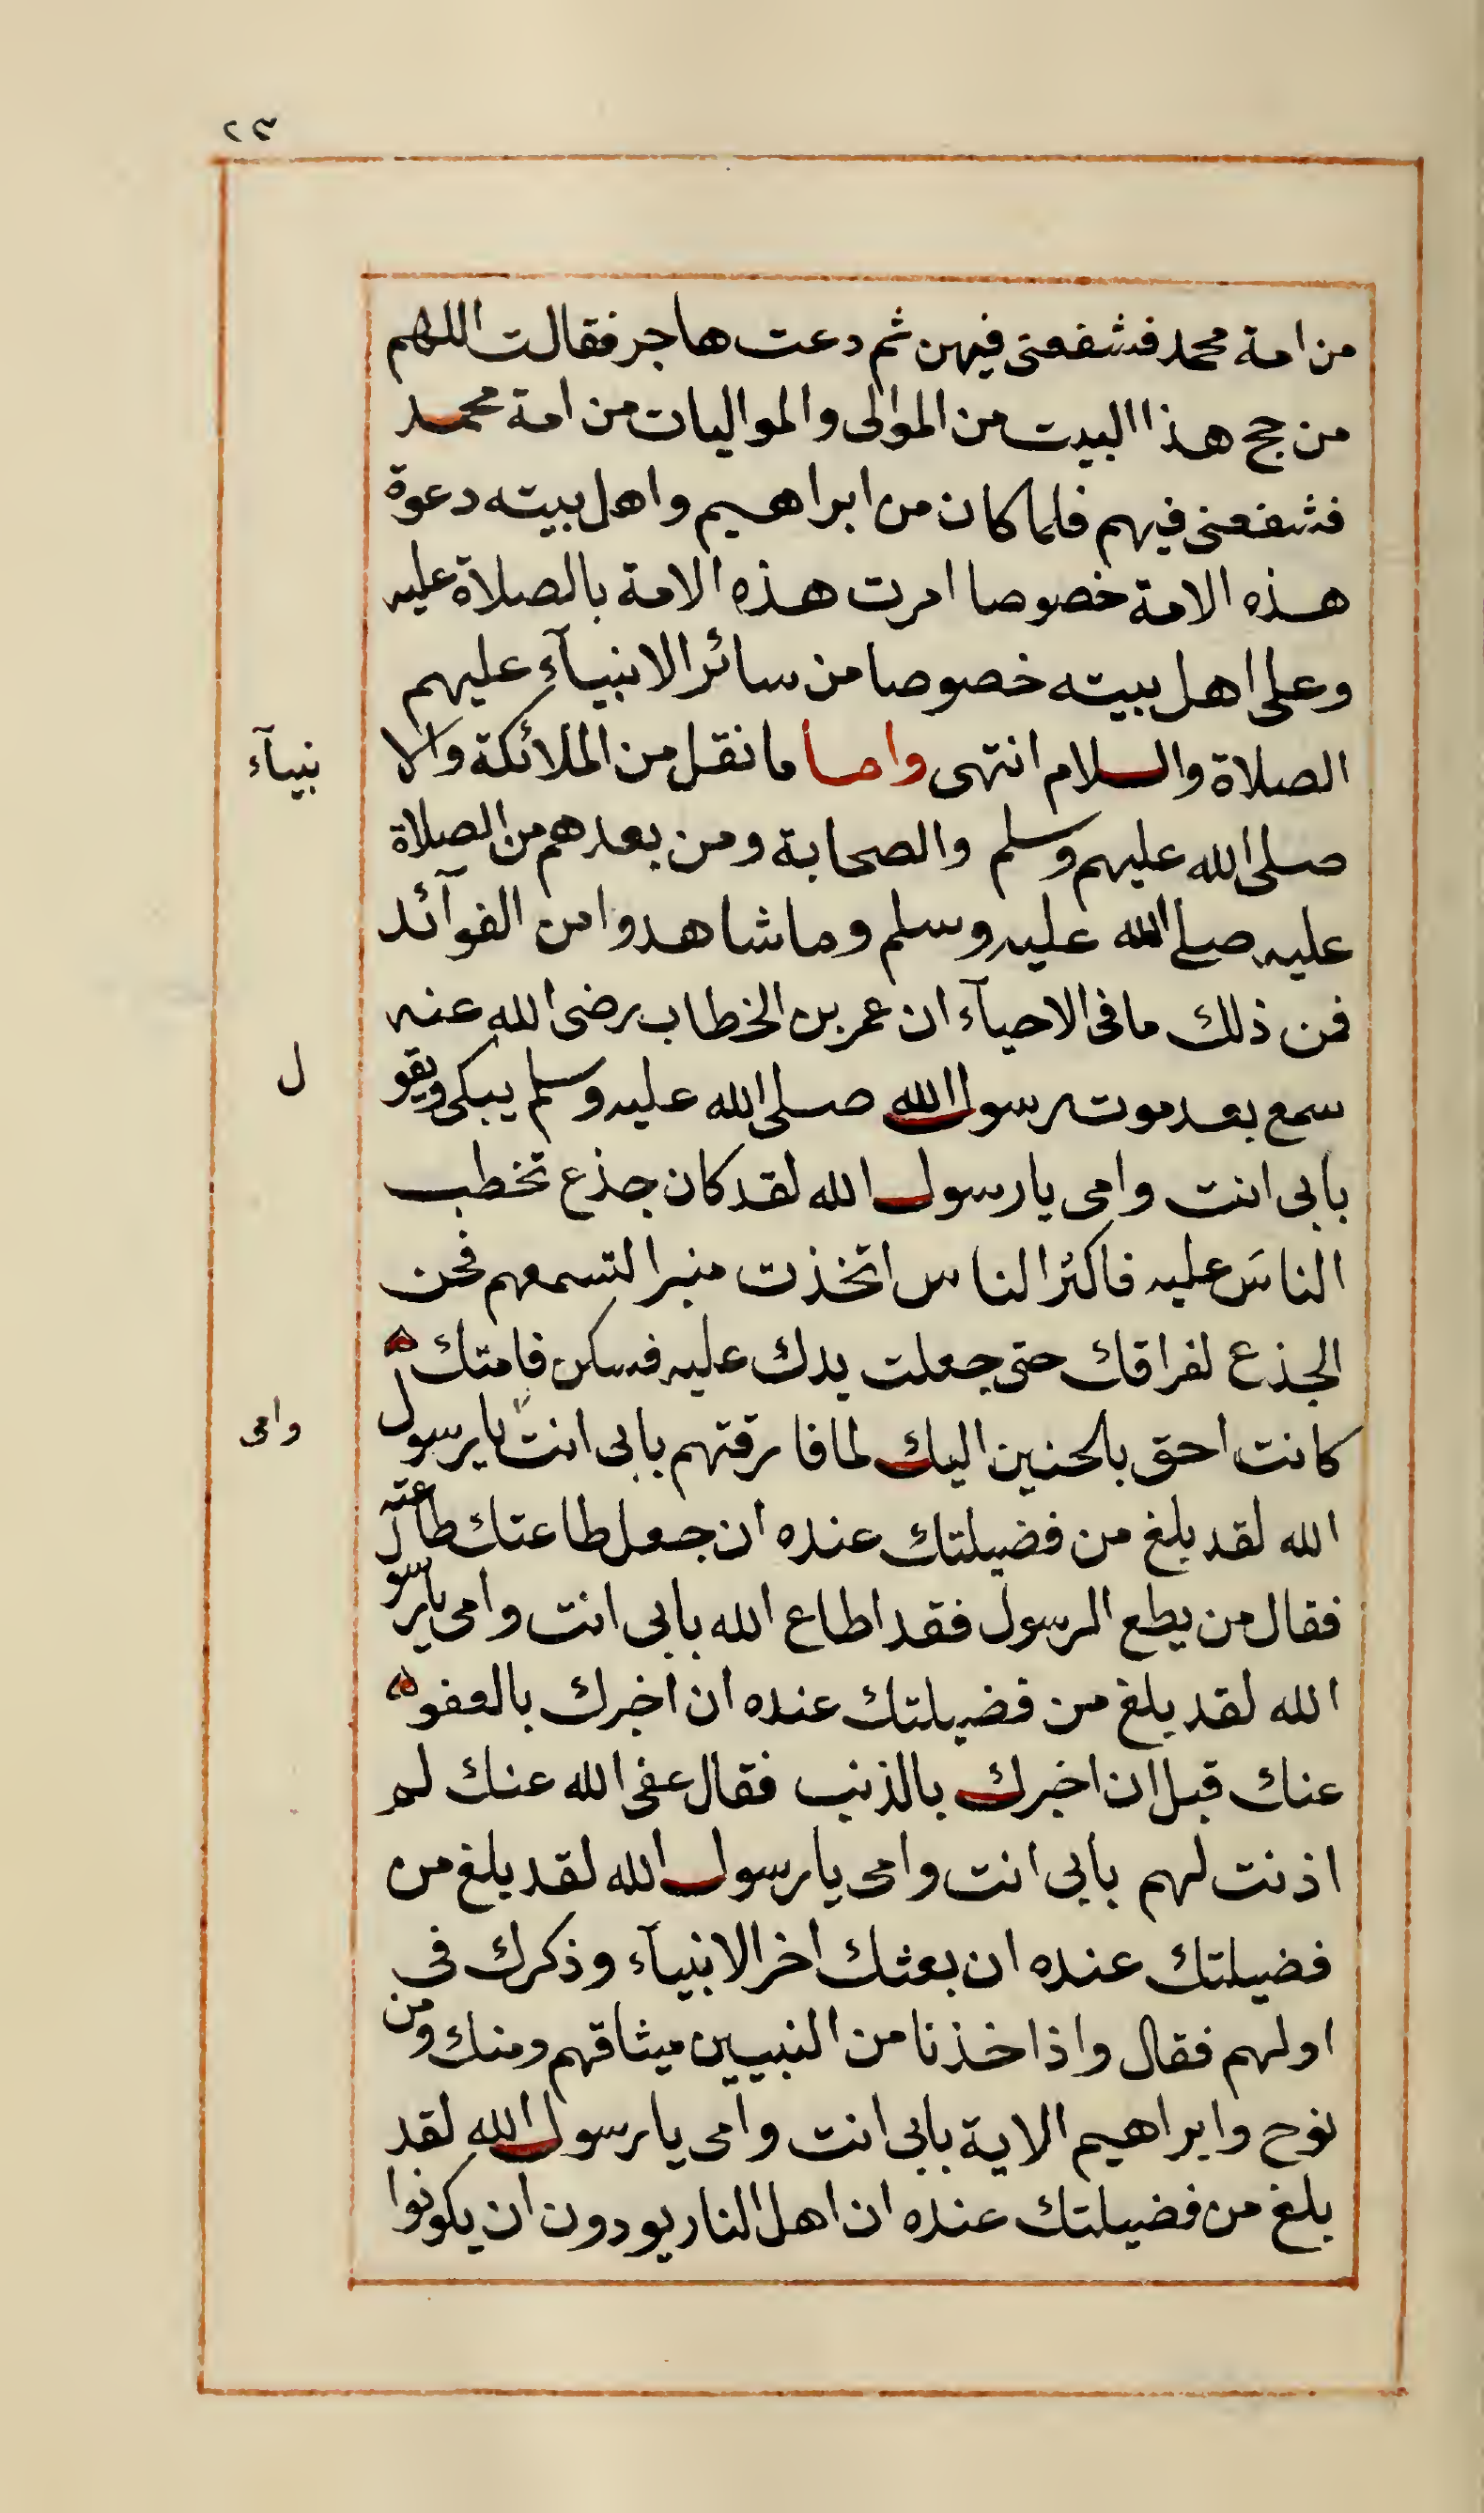 ٢٣
من امة محمد فشفعنى فيهن ثم دعت هاجر فقالت اللهم
من حج هذا البيت من الموالى والمواليات من امة محمد
فشفعنى فيهم فلما كان من ابراهيم واهل بيته دعوة
هذه الامة خصوصا امرت هذه الامة بالصلاة عليه
وعلى اهل بيته خصوصا من سائر الانبيآء عليهم
الصلاة والسلام انتهى واما ما نقل من الملائكة والا نبيآء
صلى الله عليهم وسلم والصحابة ومن بعدهم من الصلاة
عليه صلى الله عليه وسلم وما شاهدوا من الفوآئد
فمن ذلك ما فى الاحيآء ان عمر بن الخطاب رضى الله عنه
سمع بعد موت رسول الله صلى الله عليه وسلم يبكى ويقو ل
بابى انت وامى يا رسول الله لقد كان جذع تخطب
الناسَ عليه فاكثر الناس اتخذت منبرا لتسمعهم فحن
الجذع لفراقك حتى جعلت يدك عليه فسكن فامتك
كانت احق بالحنين اليك لما فارقتهم بابى انت وامى يا رسول
الله لقد بلغ من فضيلتك عنده ان جعل طاعتك طاعته
فقال من يطع الرسول فقد اطاع الله بابى انت وامى يا رسول
الله لقد بلغ من فضيلتك عنده ان اخبرك بالعفو
عنك قبل ان اخبرك بالذنب فقال عفى الله عنك لم
اذنت لهم بابى انت وامى يا رسول الله لقد بلغ من
فضيلتك عنده ان بعثك اخر الانبيآء وذكرك فى
اولهم فقال واذ اخذنا من النبيين ميثاقهم ومنك ومن
نوح وابراهيم الاية بابى انت وامى يا رسول الله لقد
بلغ من فضيلتك عنده ان اهل النار يودون ان يكونوا